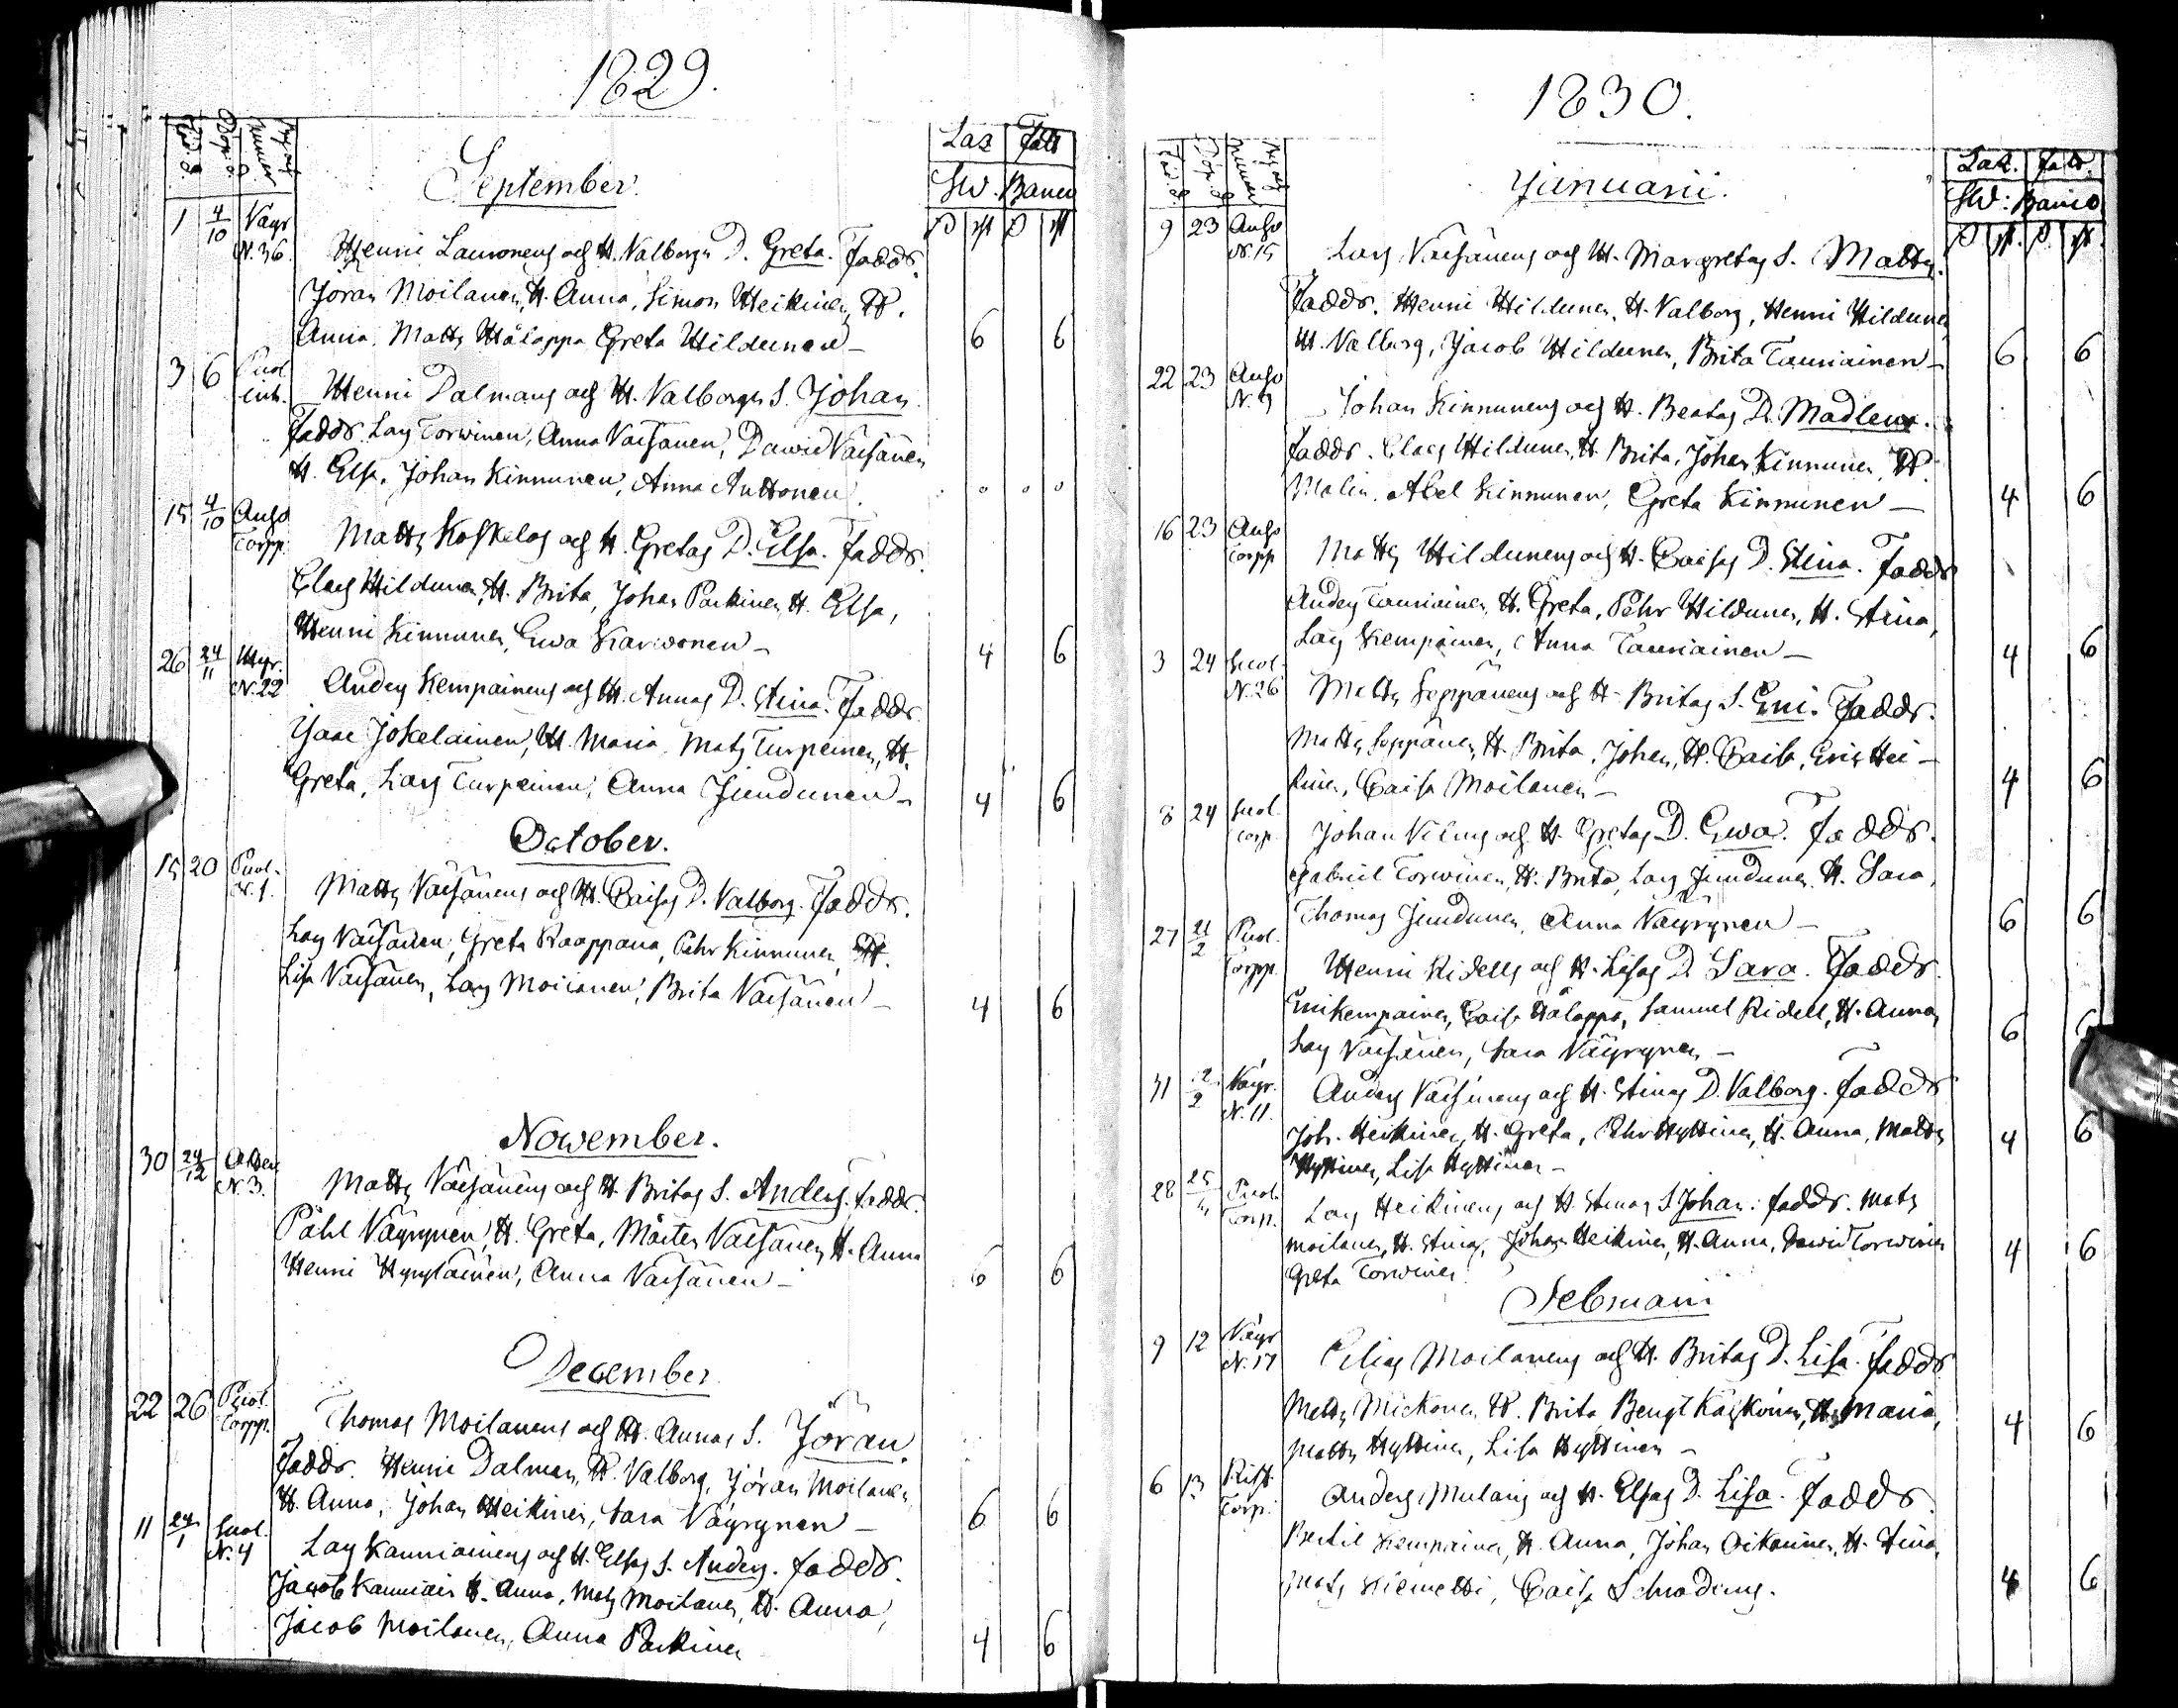 1829.
Född. Döpt. By och Nummer
Las. Fatt.
Slw. Banco
September.
1 4/10 Väyr N. 36. Henric Lauronens och H. Valborgs D. Greta. Fadds.
Jöran Moilanen, H. Anna, Simon Heikinen, H.
Anna. Matts Hälappa Greta Hildunen – 6 6
3 6 Puol inh. Henric Dalmans och H. Valborgs S. Johan.
Fadds. Lars Torwinen, Anna Väisänen, David Väisänen
H. Elsa, Johan Kinnunen, Anna Anttonen.
15 4/10 Anso Torpp. Matts Koskelos och H. Gretas D. Elsa. Fadds.
Claes Hildunen, H. Brita, Johan Parkinen, H. Elsa,
Henric Kinnunen, Ewa Karwonen – 4 6
26 24/11 Hyr. N. 22 Anders Kempainens och H. Annas D. Stina. Fadds.
Isaac Jokelainen, H. Maria, Mats Turpeinen, H.
Greta, Lars Turpeinen, Anna Jundunen – 4 6
October.
15 20 Puol. N. 1. Matts Väisänens och H. Caisas D. Valborg. Fadds.
Lars Väisänen, Greta Raappana, Pehr Kinnunen, H.
Lisa Väisänen, Lars Moilanen, Brita Väisänen – 4 6
Nowember.
30 24/12 N. 3. Matts Väisänens och H. Britas S. Anders. Fadds.
Påhl Väyrynen, H. Greta, Mårten Väisänen, H. Anna
Henric Hyrylainen, Anna Väisänen – 6 6
December
22 26 Puol. Torpp. Thomas Moilanens och H. Annas S. Jöran.
Fadds. Henric Dalman, H. Valborg, Jöran Moilanen,
H. Anna, Johan Heikinen, Sara Väyrynen – 6 6
11 24/1 Suol. N. 4 Lars Kauniainens och H. Elsas S. Anders. Fadds.
Jacob Kauniain H. Anna, Mats Moilanen, H. Anna,
Jacob Moilanen, Anna Parkinen 4 6
1830.
Född. Döpt. By och Nummer
Las. Fatt.
Slw: Banco
Januarii.
9 23 Anso N. 15 Lars Väisänens och H. Margretas S. Matts.
Fadds. Henric Hildunen, H. Valborg, Henric Hildunen
H. Valborg, Jacob Hildunen, Brita Tauriainen – 6 6
22 23 Anso Johan Kinnunens och H. Beatas D. Madlena.
Fadds. Claes Hildunen, H. Brita, Johan Kinnunen, H.
Malin. Abel Kinnunen, Greta Kinnunen – 4 6
16 23 Anso Torpp Matts Hildunens och H. Caisas D. Stina. Fadds
Anders Tauriainen, H. Greta, Pehr Hildunen, H. Stina,
Lars Kempainen, Anna Tauriainen – 4 6
3 24 Suol. N. 26 Matts Seppänens och H. Britas S. Eric. Fadds.
Matts Seppänen, H. Brita, Johan, H. Caisa, Eric Hei-
kinen, Caisa Moilanen – 4 6
8 24 Suol. Torp. Johan och H. Gretas D. Ewa. Fadds.
Gabriel Torwinen, H. Brita, Lars Jundunen, H. Sara,
Thomas Jundunen, Anna Väyrynen – 6 6
27 21/2 Puol. Torpp. Henric Ridells och H. Lisas D. Sara. Fadds.
Eric Kempainen, Caisa Hälappa, Samuel Ridell, H. Anna,
Lars Väisänen, Sara Väyrynen – 6
31 2/2 Väyr. N. 11. Anders Väisänens och H. Stinas D. Valborg. Fadds
Joh. Heikinen, H. Greta, Pehr Hyttinen, H. Anna, Matts
Hyttinen, Lisa Hyttinen – 4 6
28 Puol. Torp. Lars Heikinens och H. Stinas S. Johan. Fadds. Mats
Moilanen, H. Stina, Johan Heikinen, H. Anna, David Torwinen
Greta Torwinen. 4 6
Februarii
9 12 Väyr N. 17 Elias Moilanens och H. Britas D. Lisa. Fadds
Matts Mickonen, H. Brita Bengt Käyköinen, H. Maria,
Matts Hyttinen, Lisa Hyttinen – 4 6
6 13 Rist. Torp. Anders Mularis och H. Elsas D. Lisa. Fadds.
Bertil Kempainen, H. Anna, Johan Oikarinen, H. Stina,
Mats Kiemetti, Caisa Schroderus. 4 6